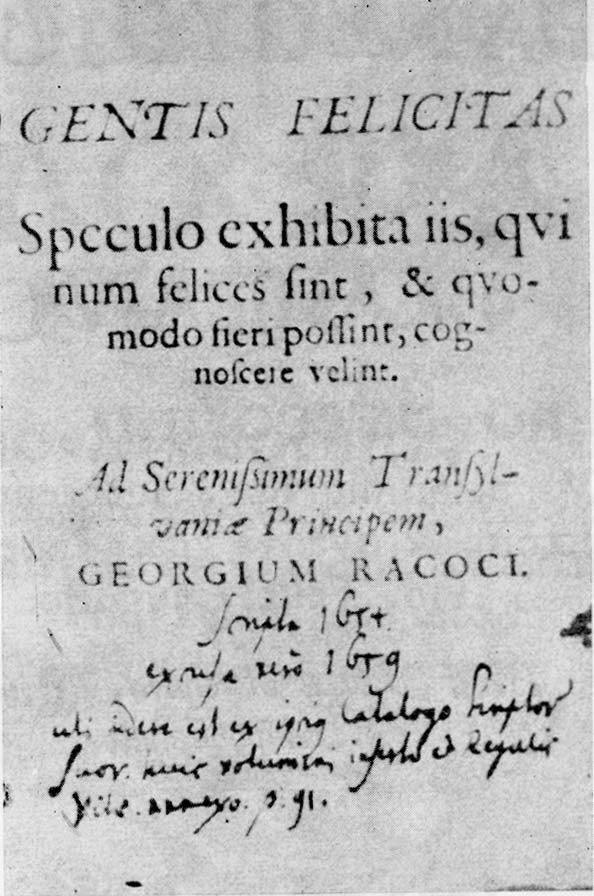 GENTIS FELICITAS
Speculo exhibita iis, qvi
num felices ſint, & qvo-
modo fieri poſſint, cog-
noſcere velint.
Ad Sereniſsimum Tranſyl-
vaniæ Principem,
GEORGIUM RACOCI.
scripta 1654.
excusa vero 1659
uti videre est ex Catalogo scriptor
suor. huic volumini inserto & Regulis
Vitæ annexo. p. 91.